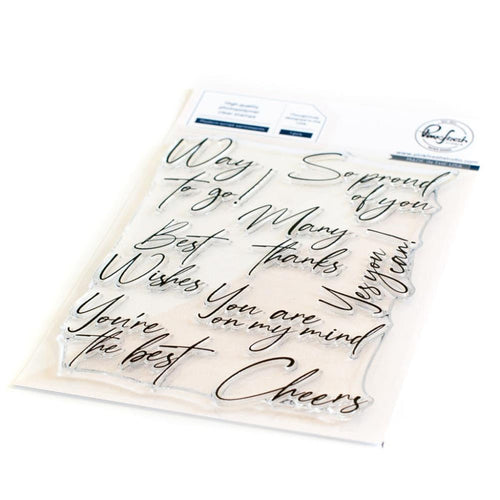 High quality
photopolymer
clear stamps
Pinkfresh
Way
to go!
So proud
of you
Many
thanks
Best
Wishes
Yes you
can!
You are
on my mind
You're
the best
Cheers